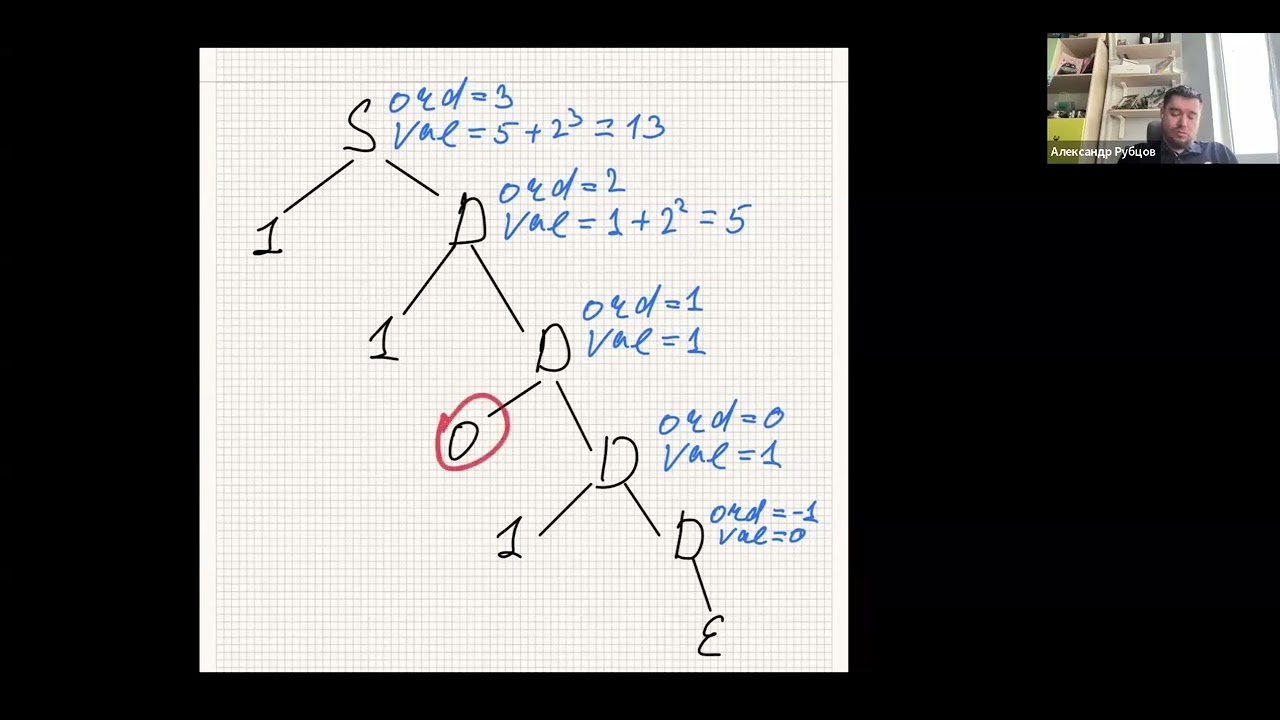 S
ord=3
val=5+2³=13
1
D
ord=2
val=1+2²=5
1
D
ord=1
val=1
0
D
ord=0
val=1
1
D
ord=-1
val=0
ε
Александр Рубцов